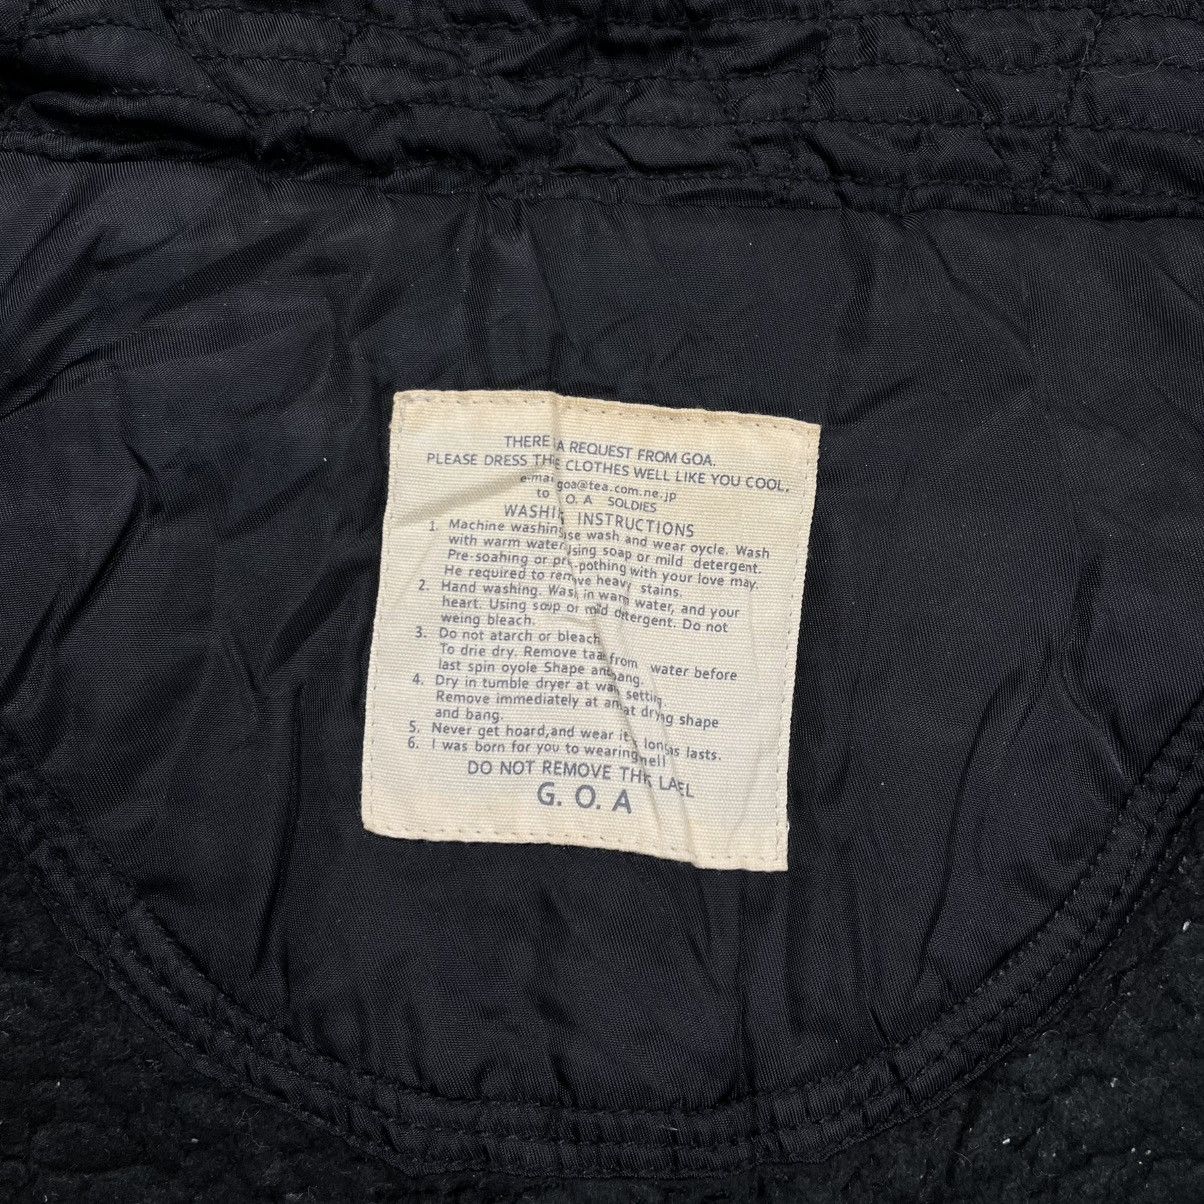 THERE A REQUEST FROM GOA.
PLEASE DRESS THE CLOTHES WELL LIKE YOU COOL.
goa@tea.com.ne.jp
to O. A SOLDIES
WASHIN INSTRUCTIONS
1. Machine washing se wash and wear oycle. Wash
with warm water Using soap or mild detergent.
Pre-soahing or pre-pothing with your love may.
He required to remove heavy stains.
2. Hand washing. Wash in warm water, and your
heart. Using soap or mild detergent. Do not
weing bleach.
3. Do not atarch or bleach
To drie dry. Remove from water before
last spin oyole Shape hang.
4. Dry in tumble dryer at setting
Remove immediately at drying shape
and bang.
5. Never get hoard, and wear it long as lasts.
6. I was born for you to wearing
DO NOT REMOVE THIS LAEL
G. O. A